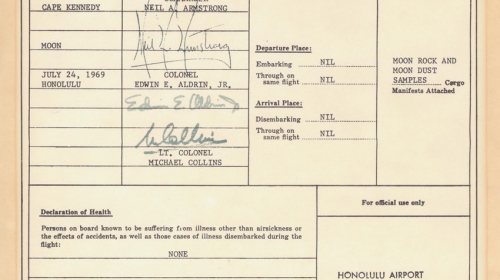 COMMANDER
CAPE KENNEDY
NEIL A. ARMSTRONG
Neil A. Armstrong
MOON
Departure Place:
Embarking NIL
Through on same flight NIL
MOON ROCK AND
MOON DUST
SAMPLES Cargo
Manifests Attached
JULY 24, 1969
HONOLULU
COLONEL
EDWIN E. ALDRIN, JR.
Edwin E. Aldrin
Arrival Place:
Disembarking NIL
Through on same flight NIL
M Collins
LT. COLONEL
MICHAEL COLLINS
Declaration of Health
Persons on board known to be suffering from illness other than airsickness or
the effects of accidents, as well as those cases of illness disembarked during the
flight:
NONE
For official use only
HONOLULU AIRPORT